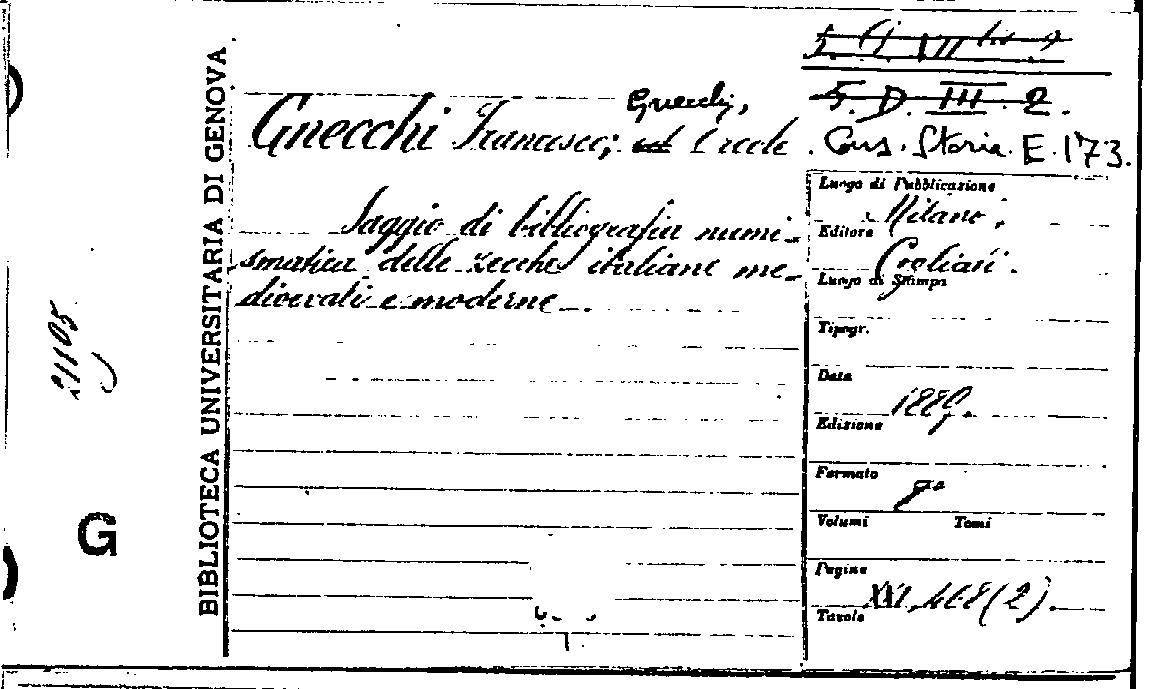 5. D. III. 2.
Gnecchi,
Gnecchi Francesco; ed Ercole.
Cons. Storia. E. 173.
Saggio di bibliografia numi-
smatica delle zecche italiane me-
dioevali e moderne.
Luogo di Pubblicazione
Milano;
Editore
Cogliati.
Luogo di Stampa
Tipogr.
Data
1889.
Edizione
Formato
8°
Volumi Tomi
Pagine
XXI, 468 (2).
Tavole
BIBLIOTECA UNIVERSITARIA DI GENOVA
21105
G